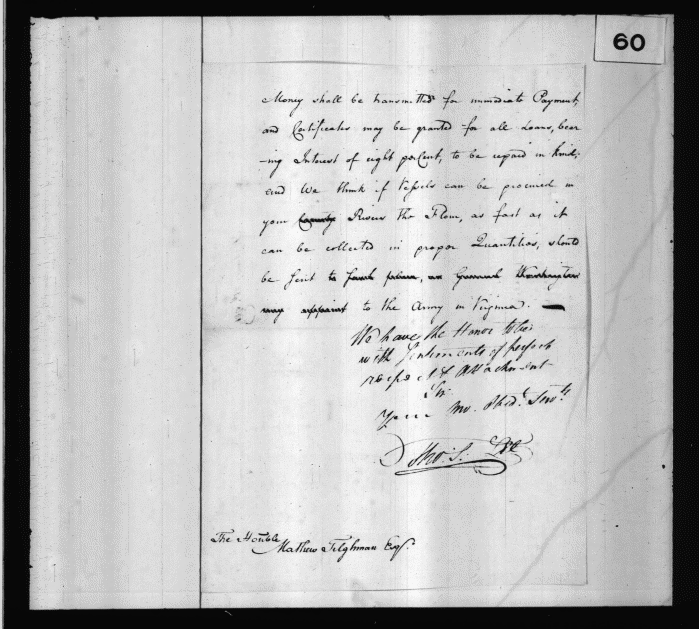 60
Money shall be transmitted for immediate Payment,
and Certificates may be granted for all Loans, bear
-ing Interest of eight per Cent, to be repaid in kind;
and We think if Vessels can be procured in
your County Rivers the Flour, as fast as it
can be collected in proper Quantities, should
be sent to such places, as General Washington
may appoint to the Army in Virginia. —
We have the Honor to be
with Sentiments of perfect
respect & Attachment
Sir
Your Mo. Obed.t Serv.ts
Tho.s S. Lee
The Honble
Mathew Tilghman Esq.r